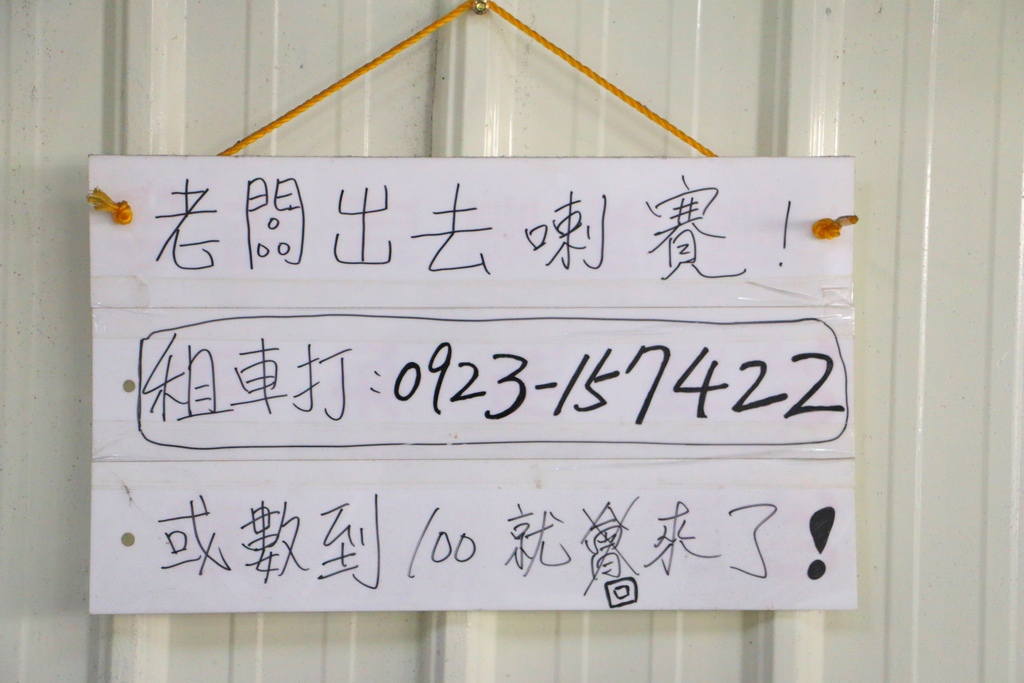 老闆出去喇賽!
租車打:0923-157422
或數到100就回來了!